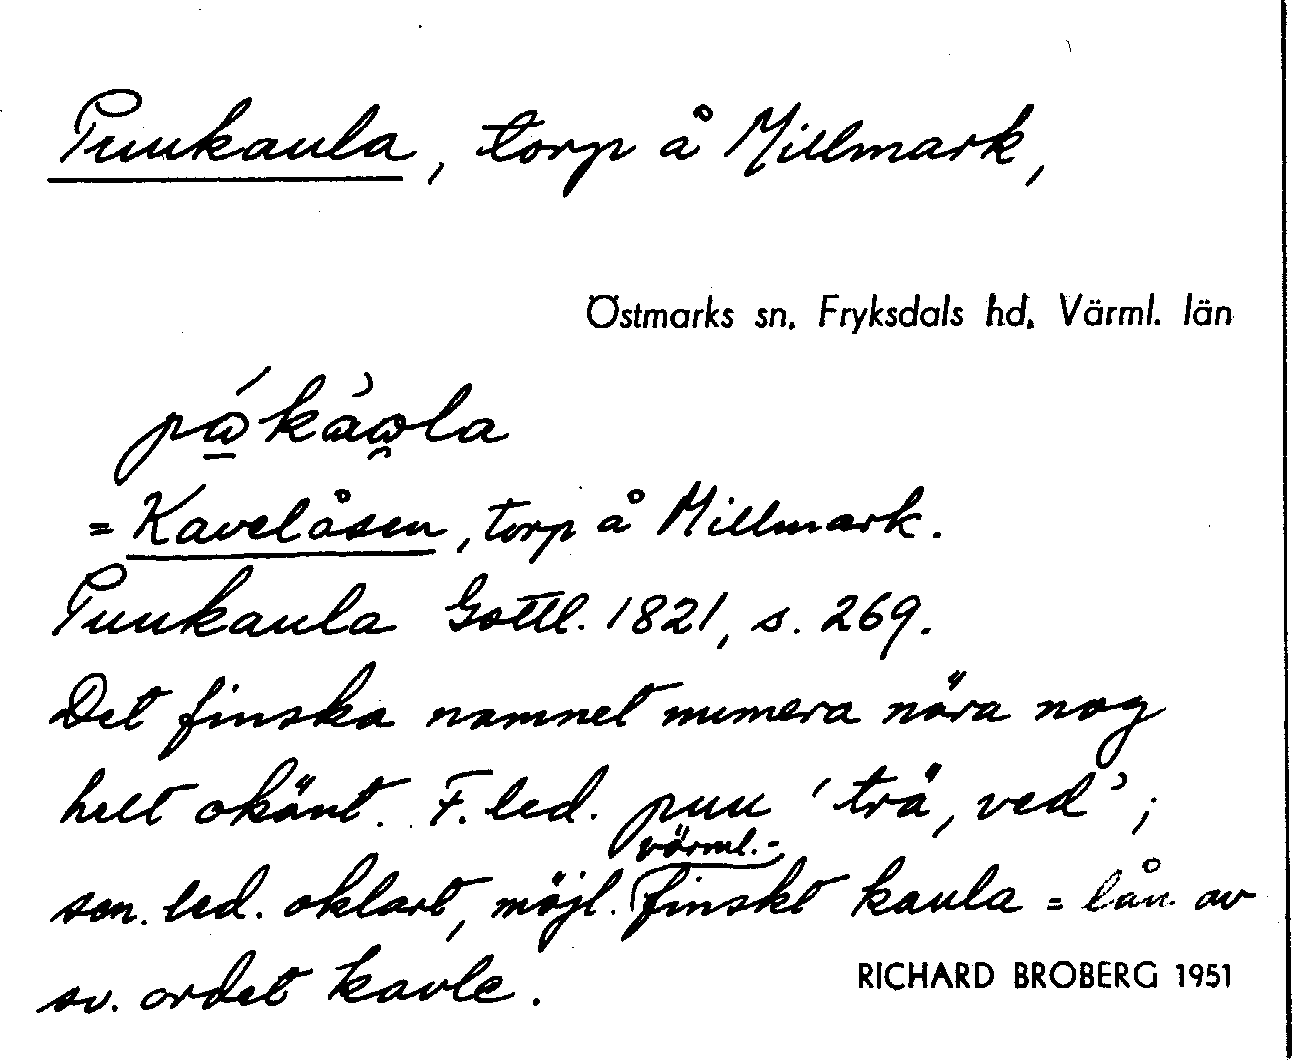 Puukaula, torp å Millmark,
Östmarks sn. Fryksdals hd. Värml. län
= Kavelåsen, torp å Millmark.
Puukaula Gottl. 1821, s. 269.
Det finska namnet numera nära nog
helt okänt. F. led. puu 'trä, ved';
sen. led. oklart, möjl. värml.-finskt kaula = lån av
sv. ordet kavle.
RICHARD BROBERG 1951